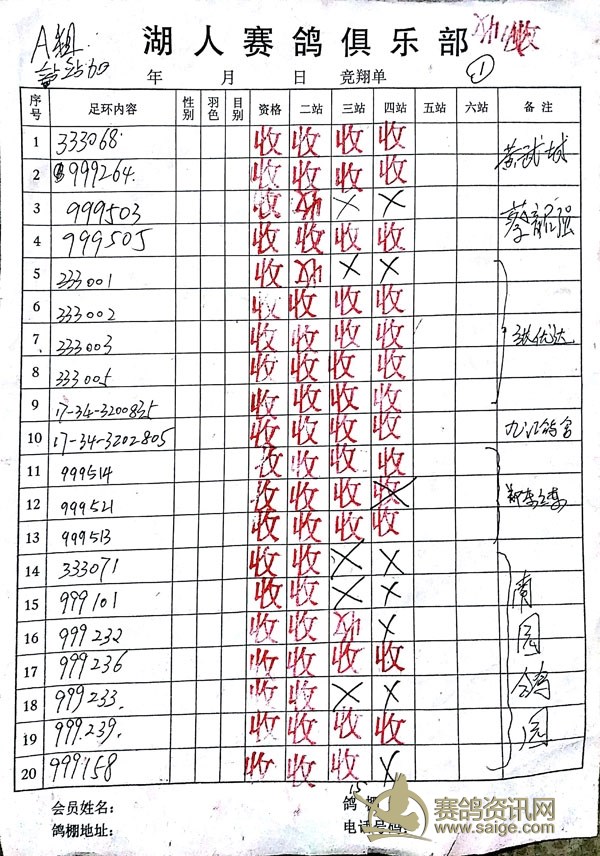 A组
湖人赛鸽俱乐部 收
年 月 日 竞翔单 ①
序号 足环内容 性别 羽色 目别 资格 二站 三站 四站 五站 六站 备注
1 333068 收 收 收 收
2 999264 收 收 收 收
3 999503 收 收 × ×
4 999505 收 收 收 收
5 333001 收 收 × ×
6 333002 收 收 收 收
7 333003 收 收 收 收
8 333005 收 收 收 收
9 17-34-3200835 收 收 收 收
10 17-34-3202805 收 收 收 收 九江鸽舍
11 999514 收 收 收 收
12 999521 收 收 收 收
13 999513 收 收 收 收
14 333071 收 收 × ×
15 999101 收 收 × ×
16 999232 收 收 收 ×
17 999236 收 收 收 收
18 999233 收 收 × ×
19 999239 收 收 收 收
20 999158 收 收 收 ×
南园鸽园
会员姓名: 鸽棚 15
鸽棚地址: 电话号码:
赛鸽资讯网
www.saige.com